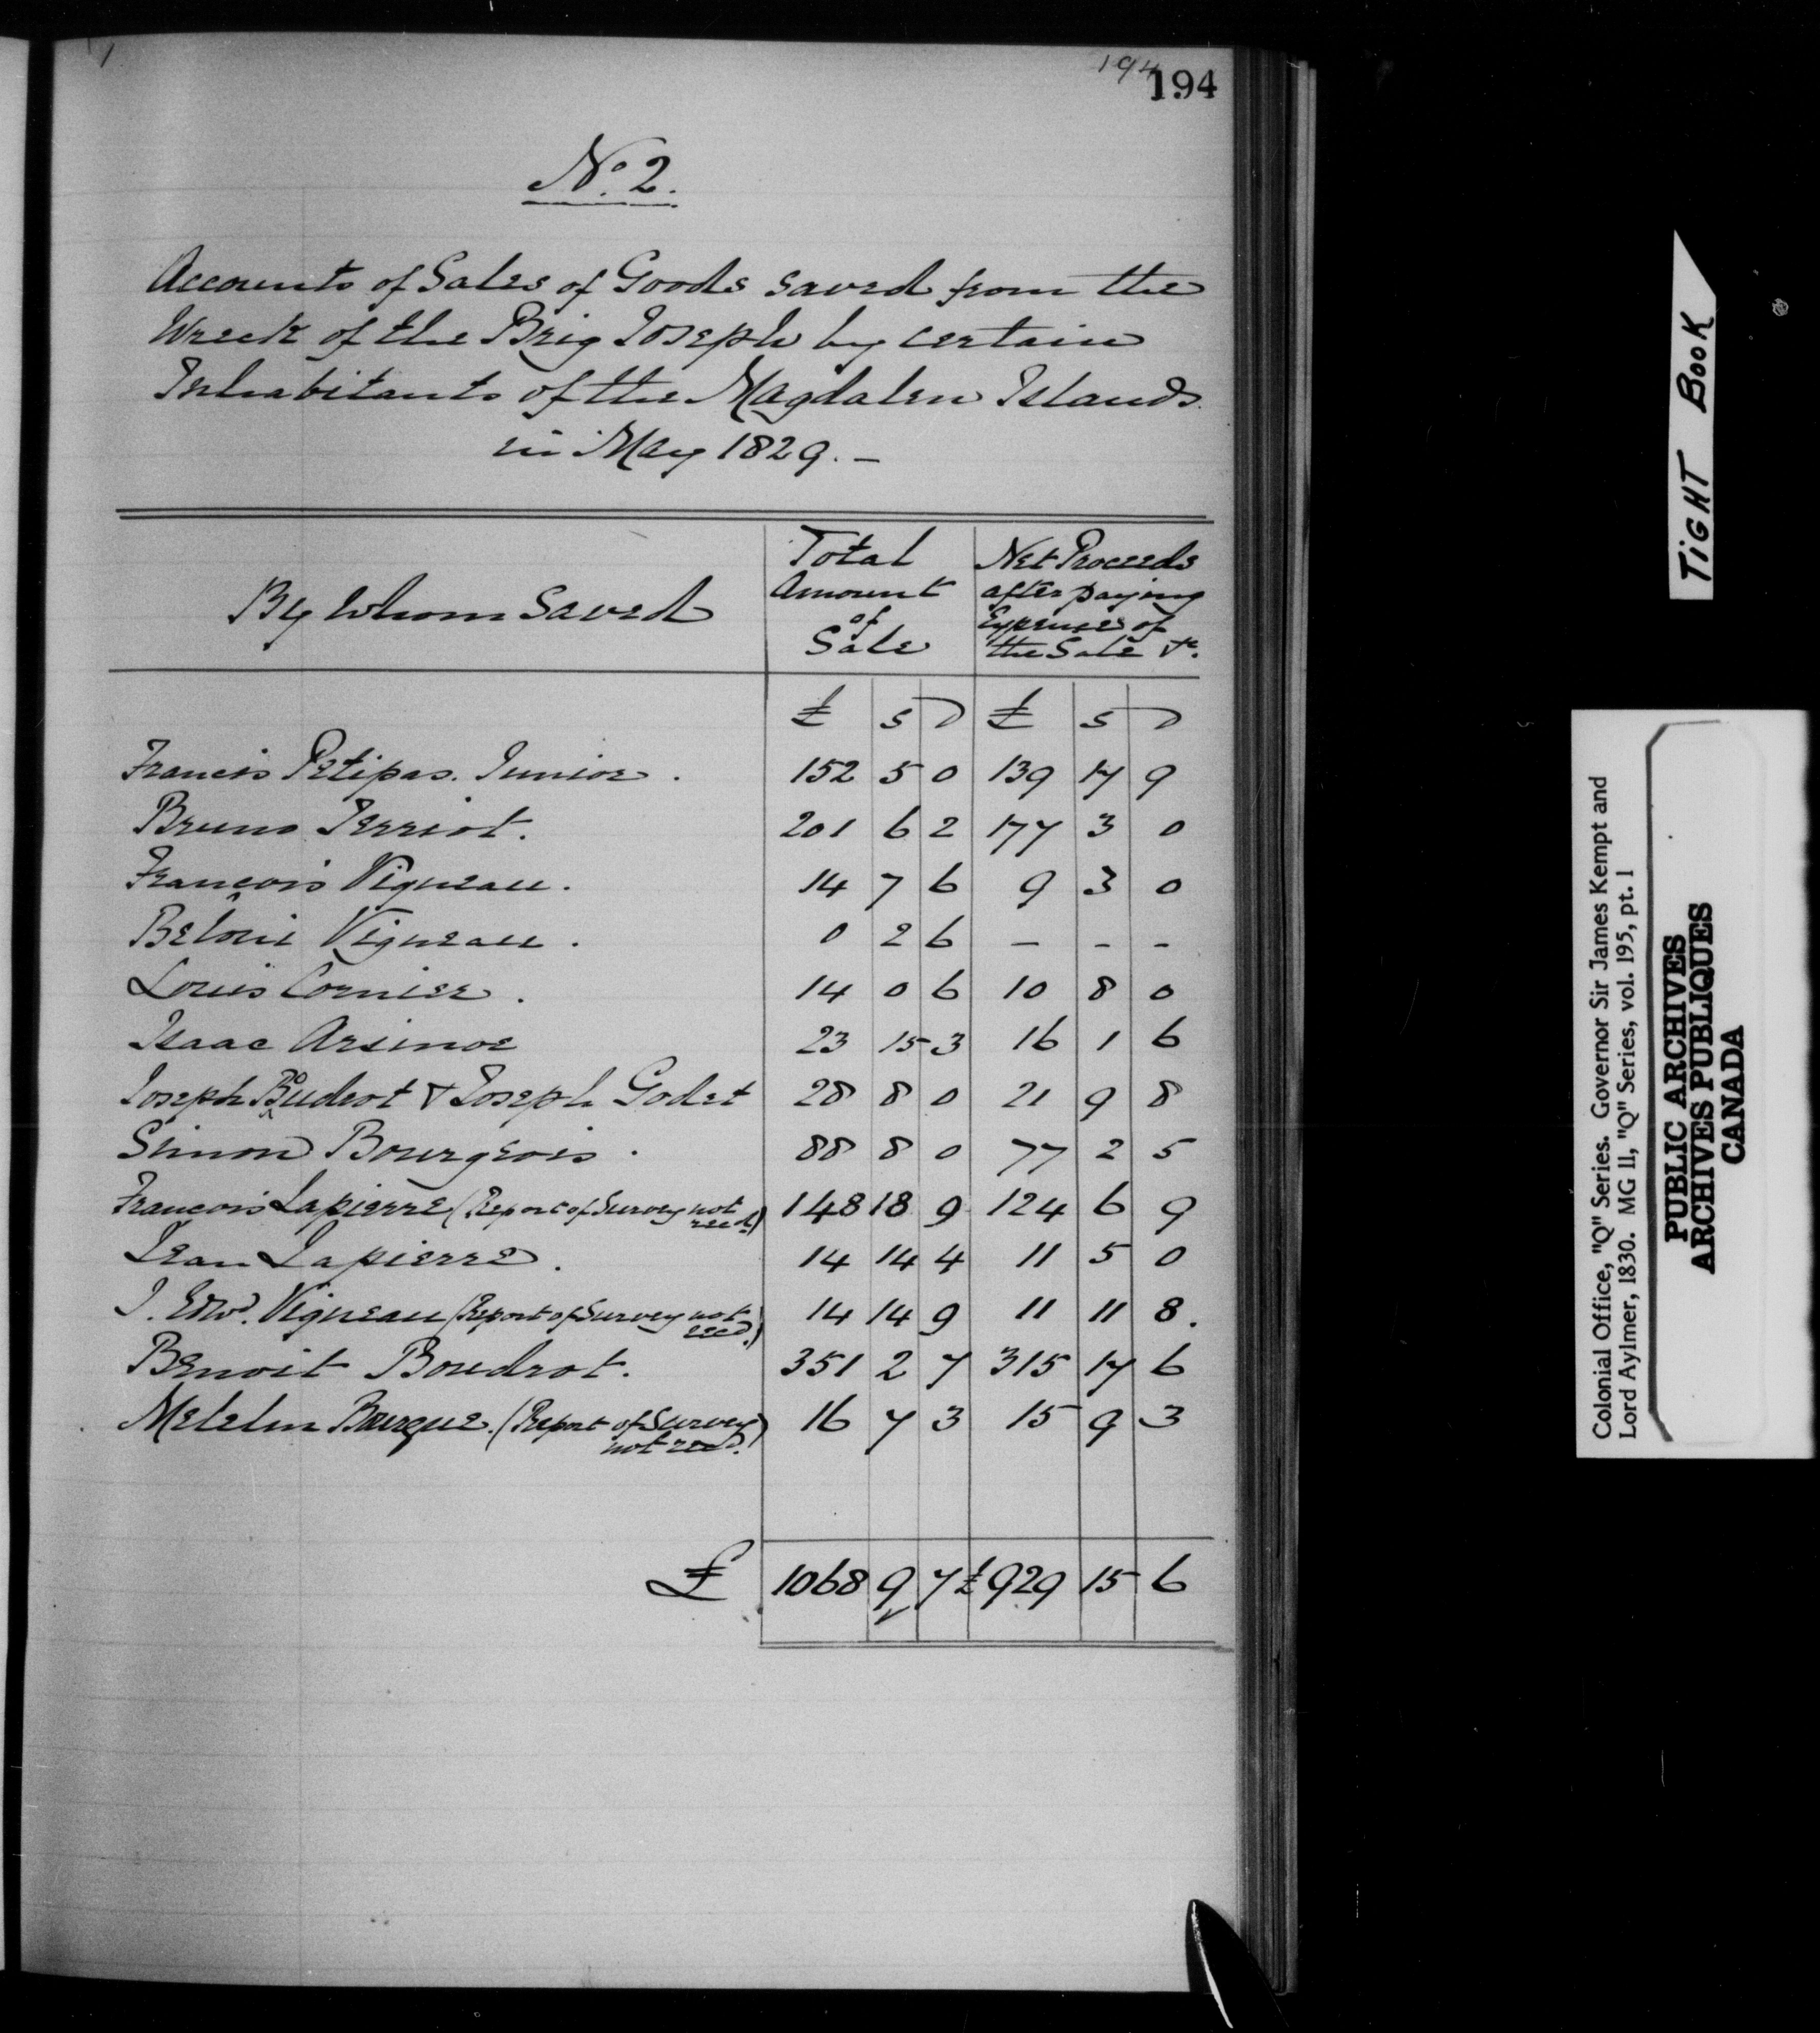 194
194
No. 2.
Accounts of Sales of Goods saved from the
Wreck of the Brig Joseph by certain
Inhabitants of the Magdalen Islands
in May 1829. —
By Whom Saved | Total Amount of Sale | Net Proceeds after paying Expenses of the Sale &c.
£ s D £ s D
Francis Petipas. Junior. 152 5 0 139 17 9
Bruno Terriot. 201 6 2 177 3 0
Francois Vigneau. 14 7 6 9 3 0
Beloni Vigneau. 0 2 6 – – –
Louis Cormier. 14 0 6 10 8 0
Isaac Arsinoe 23 15 3 16 1 6
Joseph Boudrot & Joseph Godet 28 8 0 21 9 8
Simon Bourgeois. 88 8 0 77 2 5
Francois Lapierre (Report of Survey not recd.) 148 18 9 124 6 9
Jean Lapierre. 14 14 4 11 5 0
J. Edwd. Vigneau (Report of Survey not recd.) 14 14 9 11 11 8.
Benoit Boudrot. 351 2 7 315 17 6
Bourque. (Report of Survey not recd.) 16 7 3 15 9 3
£ 1068 9 7 £929 15 6
TIGHT BOOK
Colonial Office, "Q" Series. Governor Sir James Kempt and
Lord Aylmer, 1830. MG 11, "Q" Series, vol. 195, pt. 1
PUBLIC ARCHIVES
ARCHIVES PUBLIQUES
CANADA